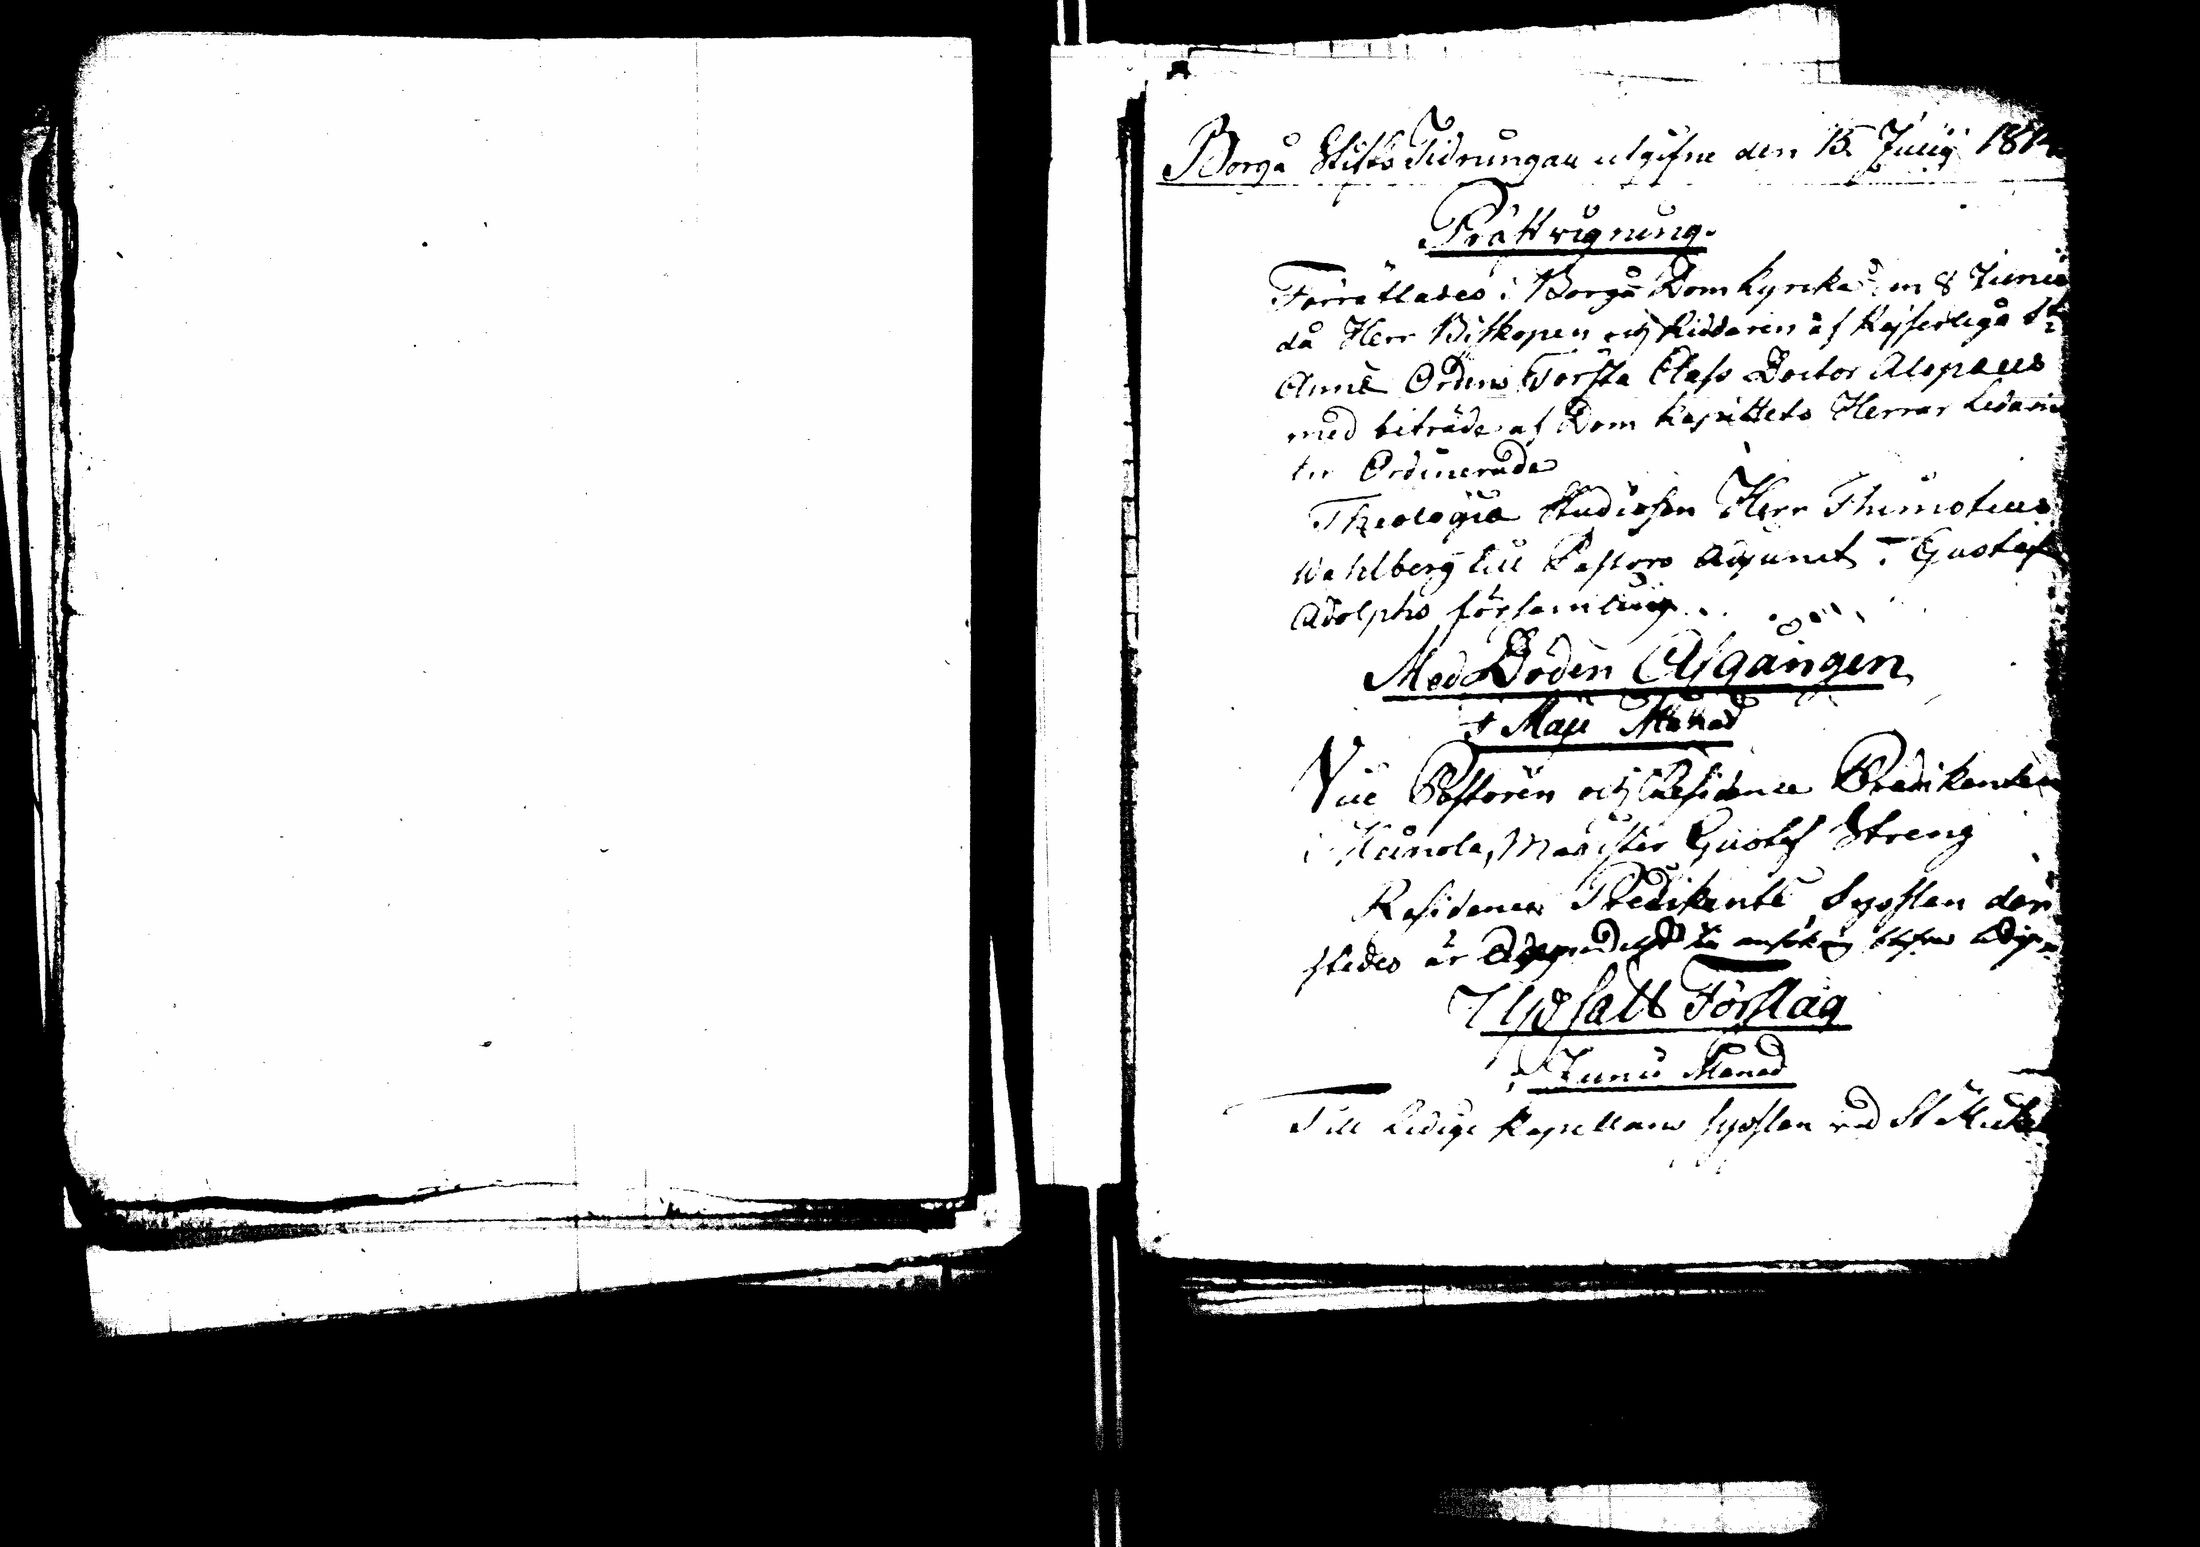 Borgå Stifts Tidningar utgifne den 15 Julij 1814
Prästvigning.
Förrättades i Borgå Domkyrcka den 8 Junii
då Herr Biskopen och Riddaren af Kejserliga St
Annæ Ordens Första Class Doctor Alopæus
med biträde af Dom Kapittlets Herrar Ledamö
ter Ordinerade
Theologiæ Studiosen Herr Thimoteus
Wahlberg till Pastors Adjunct i Gustaf
Adolphs församling.
Med Döden Afgången
i Maji Månad
Vice Pastoren och Residence Predikanten
i Heinola, Magister Gustaf Streng
Residence Predikants Sysslan der
städes är till ansökning
Upsatt Förslag
i Junii Månad
Till Lediga Kapellans sysslan vid St Michel